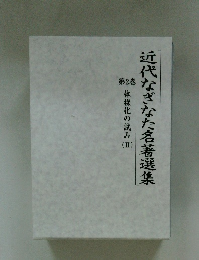 近代なぎなた名著選集
第2巻
体様化の試み(II)